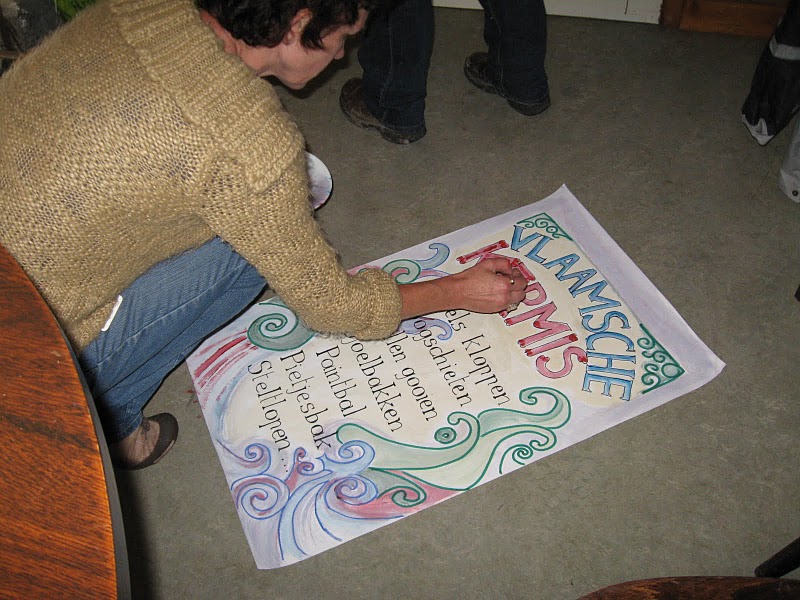 VLAAMSCHE
KERMIS
els kloppen
oogschieten
llen gooien
oelbakken
Paintbal
Pietjesbak
Steltlopen...